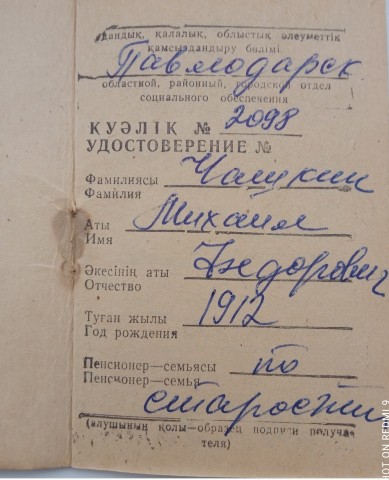 дандық, қалалық, облыстық әлеуметтік
қамсыздандыру бөлімі
Павлодарск
областной, районный, городской отдел
социального обеспечения
КУӘЛІК № 2098
УДОСТОВЕРЕНИЕ №
Фамилиясы
Фамилия
Аты Михаил
Имя
Әкесінің аты Федорович
Отчество
Туған жылы 1912
Год рождения
Пенсионер—семьясы по
Пенсионер—семья
старости
(алушының қолы—образец подписи получа-
теля)
SHOT ON REDMI 9